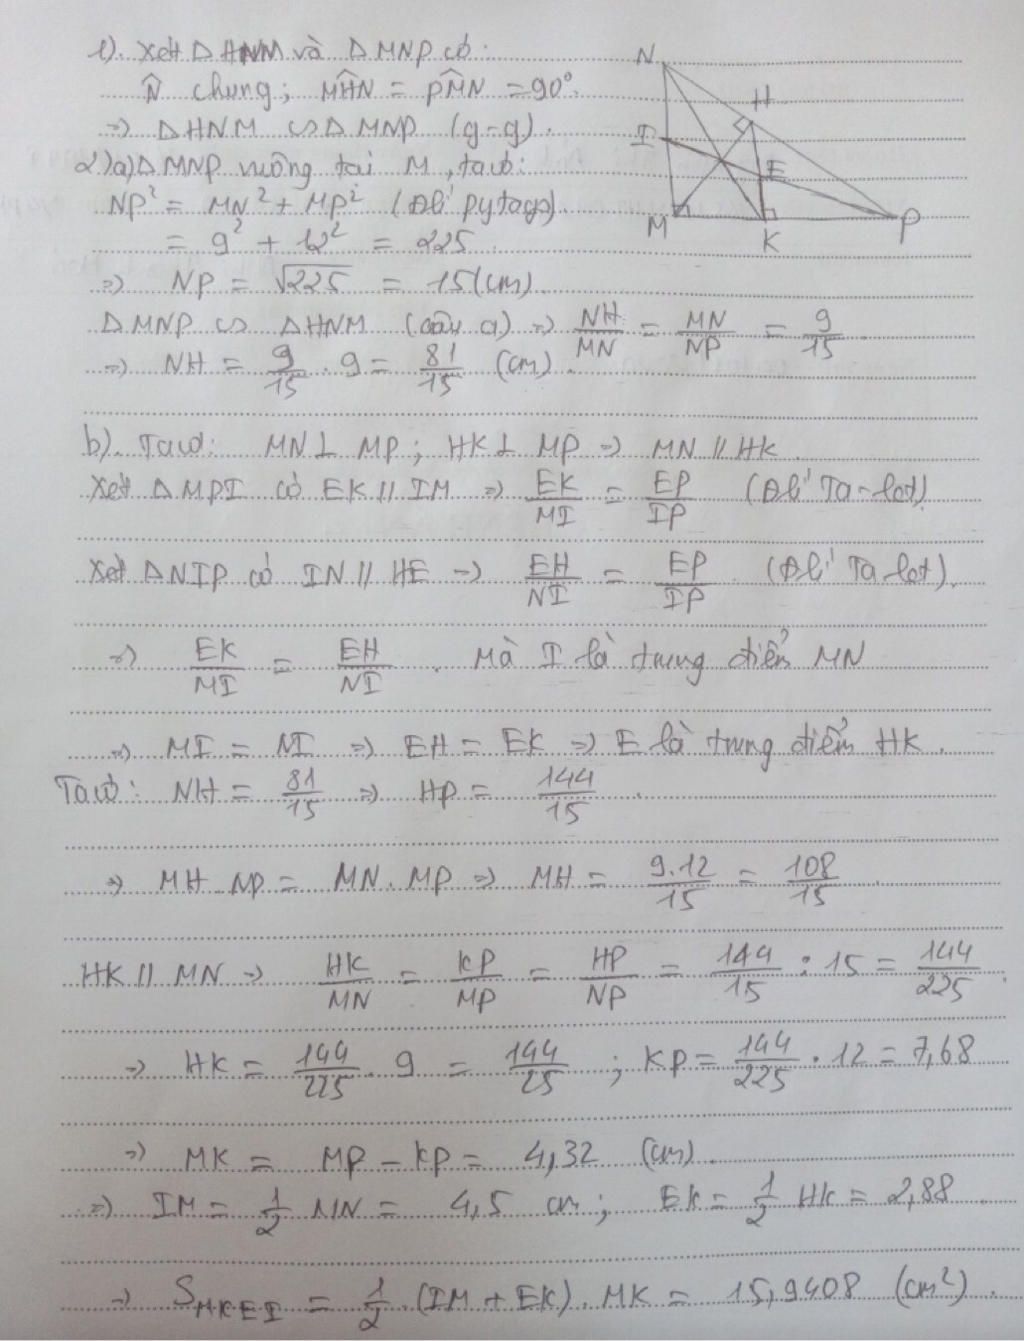 1). Xét Δ HNM và Δ MNP có:
N̂ chung; MĤN = PM̂N = 90°.
=> Δ HNM ∽ Δ MNP (g-g).
2) a) Δ MNP vuông tại M, ta có:
NP² = MN² + MP² (Đlí pytago)
= 9² + 12² = 225
=> NP = √225 = 15 (cm).
Δ MNP ∽ Δ HNM (câu a) => NH/MN = MN/NP = 9/15.
=> NH = 9/15 . 9 = 81/15 (cm).
b). Ta có: MN ⊥ MP ; HK ⊥ MP => MN // HK.
Xét Δ MPI có EK // IM => EK/MI = EP/IP (Đlí Ta-lét)
Xét Δ NIP có IN // HE => EH/NI = EP/IP (Đlí Ta lét).
=> EK/MI = EH/NI . Mà I là trung điểm MN
=> MI = NI => EH = EK => E là trung điểm HK.
Ta có: NH = 81/15 => HP = 144/15.
=> MH.NP = MN.MP => MH = 9.12/15 = 108/15.
HK // MN => HK/MN = KP/MP = HP/NP = 144/15 : 15 = 144/225.
=> HK = 144/225 . 9 = 144/25 ; KP = 144/225 . 12 = 7,68
=> MK = MP - KP = 4,32 (cm).
=> IM = 1/2 MN = 4,5 cm; EK = 1/2 HK = 2,88
=> S_MKEI = 1/2 .(IM + EK). MK = 15,9408 (cm²).
N
H
I
E
M
K
P